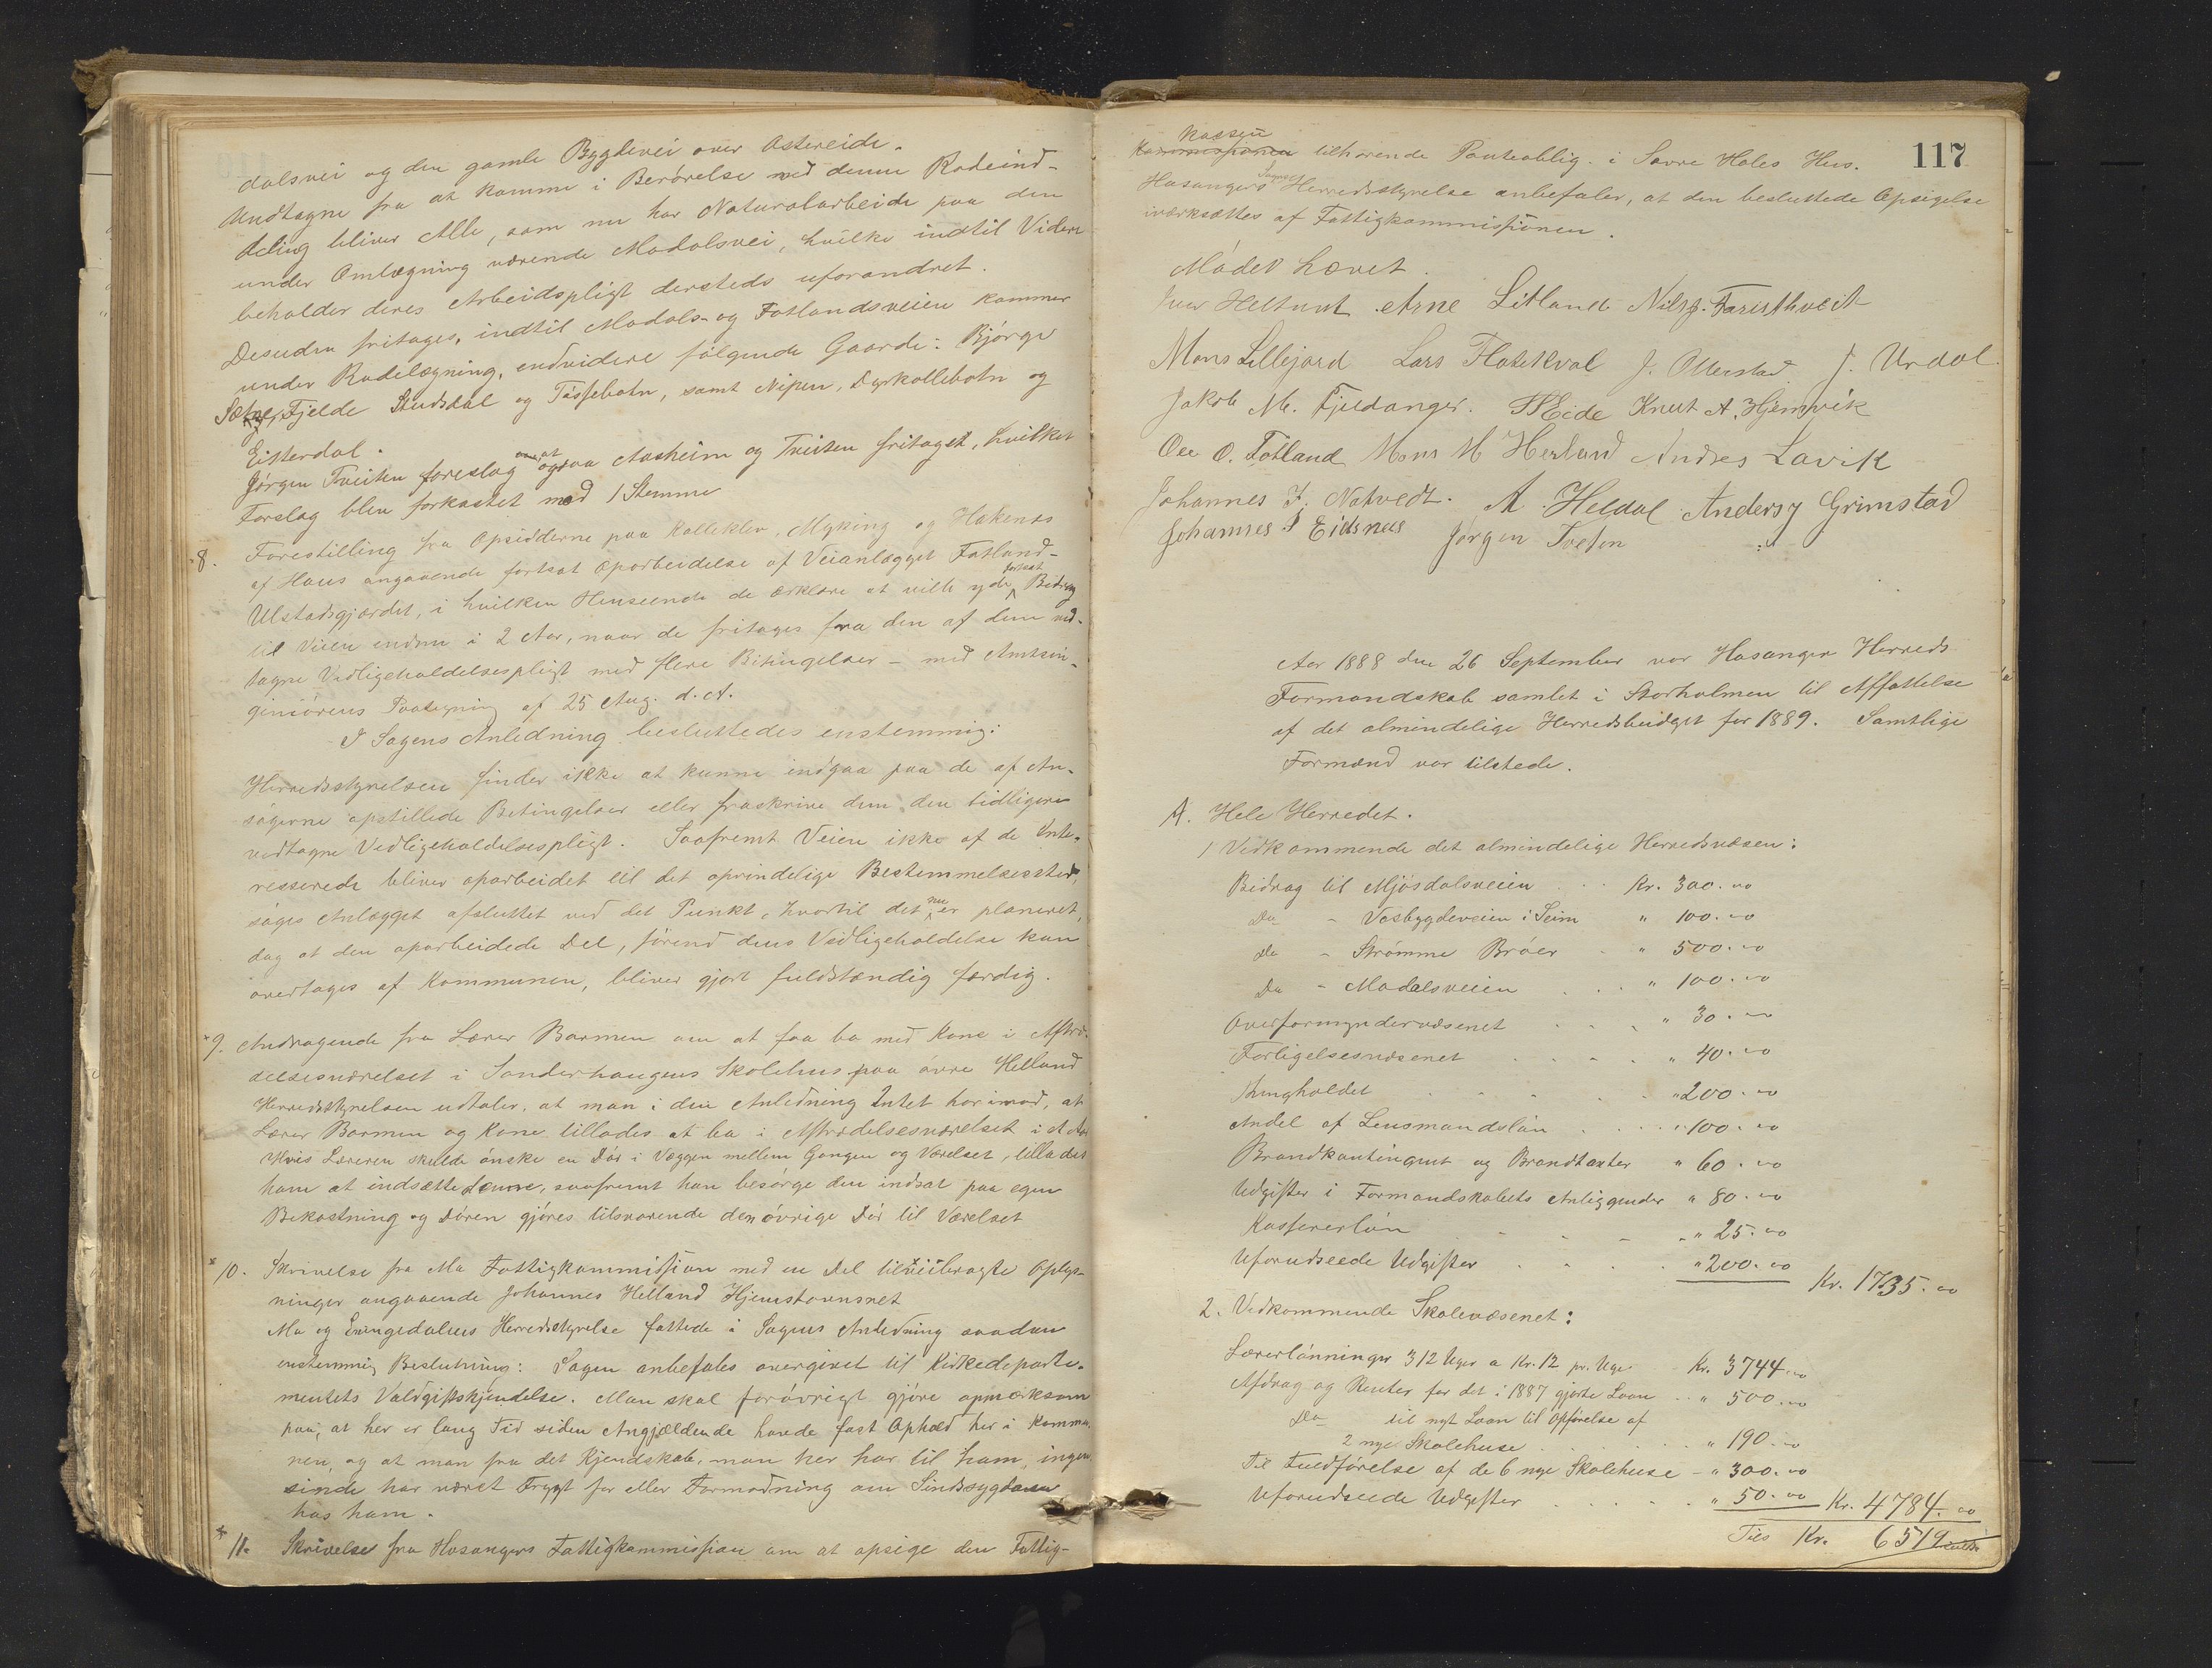 dalsvei og den gamle Bygdevei over Ostereide.
Undtagne fra at komme i Berørelse ved denne Rodeind-
deling bliver Alle, som nu har Naturalarbeide paa den
under Omlægning værende Modalsvei, hvilke indtil Videre
beholder deres Arbeidspligt dersteds uforandret.
Desuden fritages, indtil Modals- og Fotlandsveien kommer
under Rodelægning, endvidere følgende Gaarde: Bjørge
Sætre, Fjelde Studsdal og Tøssebotn, samt Nipen, Dyrkollebotn og
Eitterdal.
Jørgen Tveiten foreslog om at ogsaa Aasheim og Tveiten fritaget, hvilket
Forslag blev forkastet mod 1 Stemme
8. Forestilling fra Opsidderne paa Kalleklev, Myking og Hakenes
af Hous angaaende fortsat Oparbeidelse af Veianlægget Fatland-
Ulstadsgjærdet, i hvilken Henseende de erklære at ville yde fortsat Bidrag
til Veien endnu i 2 Aar, naar de fritages fra den af dem ved-
tagne Vedligeholdelsespligt med flere Betingelser - med Amtsin-
geniørens Paategning af 25 Aug. d. A.
I Sagens Anledning besluttedes enstemmig:
Herredsstyrelsen finder ikke at kunne indgaa paa de af An-
søgerne opstillede Betingelser eller fraskrive dem den tidligere
vedtagne Vedligeholdelsespligt. Saafremt Veien ikke af de Inte-
resserede bliver oparbeidet til det oprindelige Bestemmelsessted,
søges Anlægget afsluttet ved det Punkt, hvortil det nu er planeret,
dog at den oparbeidede Del, førend dens Vedligeholdelse kan
overtages af Kommunen, bliver gjort fuldstændig færdig.
9. Andragende fra Lærer Barmen om at faa bo med Kone i Aftræ-
delsesværelset i Sonderhaugens Skolehus paa øvre Helland
Herredsstyrelsen udtaler, at man i den Anledning Intet har imod, at
Lærer Barmen og Kone tillades at bo i Aftrædelsesværelset i et Aar
Hvis Læreren skulde ønske en Dør i Væggen mellem Gangen og Værelset, tillades
ham at indsætte denne, saafremt han besørge den indsat paa egen
Bekostning og Døren gjøres tilsvarende den øvrige Dør til Værelset
10. Skrivelse fra Mo Fattigkommission med en Del tilveiebragte Oplys-
ninger angaaende Johannes Helland Hjemstavnsret
Mo og Exingedalens Herredsstyrelse fattede i Sagens Anledning saadan
enstemmig Beslutning: Sagen anbefales overgivet til Kirkedeparte-
mentets Voldgiftskjendelse. Man skal forøvrigt gjøre opmærksom
paa, at her er lang Tid siden Angjældende havde fast Ophold her i Kommu-
nen, og at man fra det Kjendskab, man her har til ham, ingen-
sinde har næret Frygt for eller Formodning om Sindssygdom
hos ham.
11. Skrivelse fra Hosangers Fattigkommission om at opsige den Fattig-
117
kassen
Kommissionen tilhørende Panteoblig. i Sovre Holes Hus.
Hosangers Sogns Herredsstyrelse anbefaler, at den besluttede Opsigelse
iværksættes af Fattigkommissionen.
Mødet hævet.
Iver Heltunt Arne Litland Nils J. Faristhveit
Mons Lillejord Lars Flotekval J. Ollerstad J. Urdal
Jakob M. Fjeldanger. H Eide Knut A. Hjemvik
Ole O. Totland Mons M Herland Andres Lavik
Johannes J. Natvedt. A. Heldal Anders J Grimstad
Johannes J Eidsnes Jørgen Tveten
Aar 1888 den 26 September var Hosanger Herreds
Formandskab samlet i Storholmen til Affattelse
af det almindelige Herredsbudget for 1889. Samtlige
Formænd var tilstede.
A. Hele Herredet.
1 Vedkommende det almindelige Herredsvæsen:
Bidrag til Mjøsdalsveien Kr. 300.00
Do - Vosbygdeveien i Seim " 100.00
Do - Strømme Broer " 500.00
Do - Modalsveien " 100.00
Overformyndervæsenet " 30.00
Forligelsesvæsenet " 40.00
Thingholdet " 200.00
Andel af Lensmandsløn " 100.00
Brandkontingent og Brandtaxter " 60.00
Udgifter i Formandskabets Anliggender " 80.00
Kassererløn " 25.00
Uforudseede Udgifter " 200.00 Kr. 1735.00
2. Vedkommende Skolevæsenet:
Lærerlønninger 312 Uger a Kr. 12 pr. Uge Kr. 3744.00
Afdrag og Renter for det i 1887 gjorte Laan " 500.00
Do til nyt Laan til Opførelse af
2 nye Skolehuse " 190.00
Til Fuldførelse af de 6 nye Skolehuse - " 300.00
Uforudseede Udgifter " 50.00 Kr. 4784.00
Tils Kr. 6519